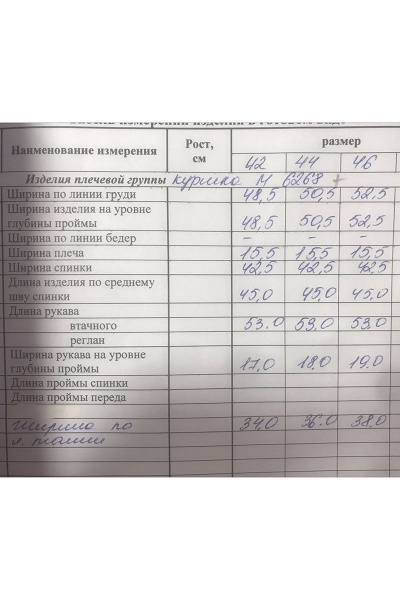 Табель измерений изделия в готовом виде
Наименование измерения Рост, см размер
42 44 46
Изделия плечевой группы куртка М 6268
Ширина по линии груди 48,5 50,5 52,5
Ширина изделия на уровне
глубины проймы 48,5 50,5 52,5
Ширина по линии бедер - - -
Ширина плеча 15,5 15,5 15,5
Ширина спинки 42,5 42,5 42,5
Длина изделия по среднему
шву спинки 45,0 45,0 45,0
Длина рукава
втачного 53.0 53,0 53,0
реглан
Ширина рукава на уровне
глубины проймы 17,0 18,0 19,0
Длина проймы спинки
Длина проймы переда
Ширина по 34,0 36.0 38,0
л. талии